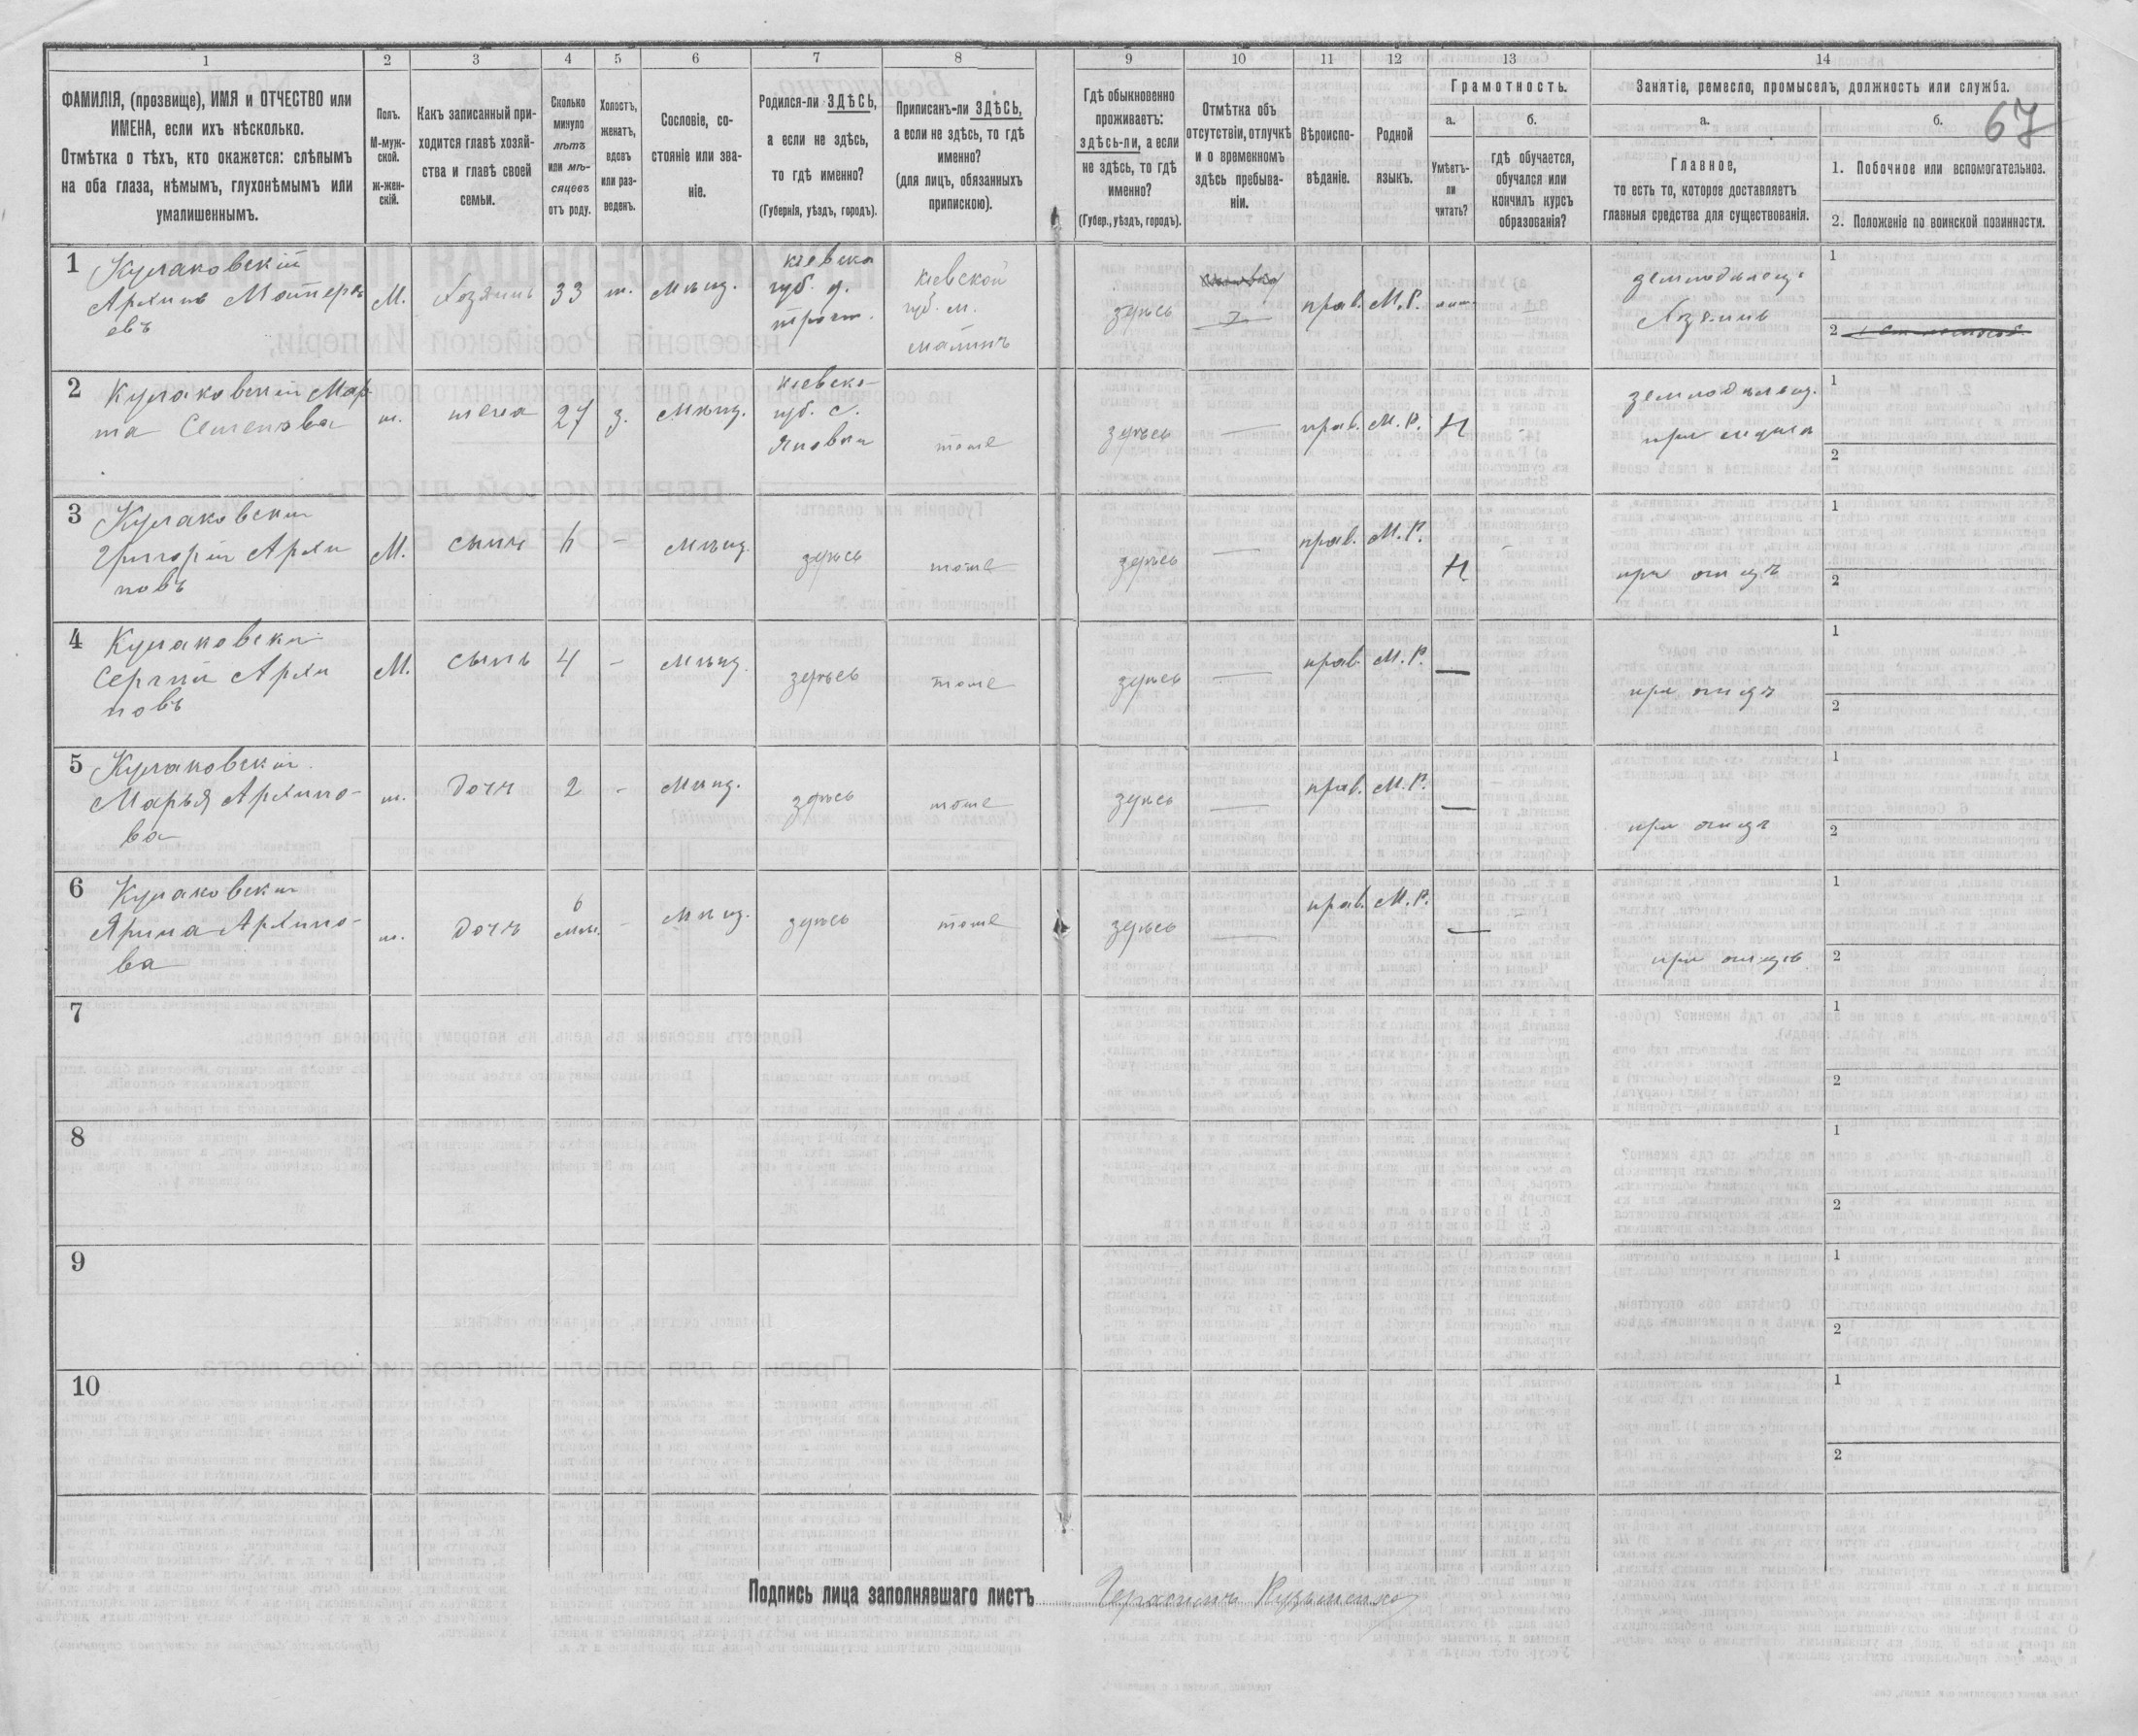 1 2 3 4 5 6 7 8 9 10 11 12 13 14
ФАМИЛІЯ, (прозвище), ИМЯ и ОТЧЕСТВО или
ИМЕНА, если ихъ нѣсколько.
Отмѣтка о тѣхъ, кто окажется: слѣпымъ
на оба глаза, нѣмымъ, глухонѣмымъ или
умалишеннымъ.
Полъ.
М-муж-
ской.
ж-жен-
скій.
Какъ записанный при-
ходится главѣ хозяй-
ства и главѣ своей
семьи.
Сколько
минуло
лѣтъ
или мѣ-
сяцевъ
отъ роду.
Холостъ,
женатъ,
вдовъ
или раз-
веденъ.
Сословіе, со-
стояніе или зва-
ніе.
Родился-ли ЗДѢСЬ,
а если не здѣсь,
то гдѣ именно?
(Губернія, уѣздъ, городъ).
Приписанъ-ли ЗДѢСЬ,
а если не здѣсь, то гдѣ
именно?
(для лицъ, обязанныхъ
припискою).
Гдѣ обыкновенно
проживаетъ:
здѣсь-ли, а если
не здѣсь, то гдѣ
именно?
(Губер., уѣздъ, городъ).
Отмѣтка объ
отсутствіи, отлучкѣ
и о временномъ
здѣсь пребыва-
ніи.
Вѣроиспо-
вѣданіе.
Родной
языкъ.
Грамотность.
а.
Умѣетъ-
ли
читать?
б.
гдѣ обучается,
обучался или
кончилъ курсъ
образованія?
Занятіе, ремесло, промыселъ, должность или служба.
а.
Главное,
то есть то, которое доставляетъ
главныя средства для существованія.
б.
67
1. Побочное или вспомогательное.
2. Положеніе по воинской повинности.
1 Кулаковскій
Архипъ
евъ
М. Хозяинъ 33 ж. Мѣщ.
кіевско
губ. г.
кіевской
губ. м.
малинъ
здѣсь
прав. М.Р.
Хозяинъ
1
2
2 Кулаковскій Мар
та Семенова
ж. жена 27 з. Мѣщ.
кіевско
губ. с.
Яновки
тоже
здѣсь — прав. М.Р. Н
1
2
3 Кулаковски
Григорій Архи
повъ
М. сынъ 6 - Мѣщ. здѣсь тоже
здѣсь — прав. М.Р. Н при отцѣ
1
2
4 Кулаковски
Сергѣй Архи
повъ
М. сынъ 4 - Мѣщ. здѣсь тоже
здѣсь — прав. М.Р. — при отцѣ
1
2
5 Кулаковски
Марья Архипо-
ва
ж. дочь 2 - Мѣщ. здѣсь тоже
здѣсь — прав. М.Р. — при отцѣ
1
2
6 Кулаковски
Ярина Архипо-
ва
ж. дочь 6 мѣс. - Мѣщ. здѣсь тоже
здѣсь — прав. М.Р. — при отцѣ
1
2
7
1
2
8
1
2
9
1
2
10
1
2
Подпись лица заполнявшаго листъ Герасимъ Кузьменко